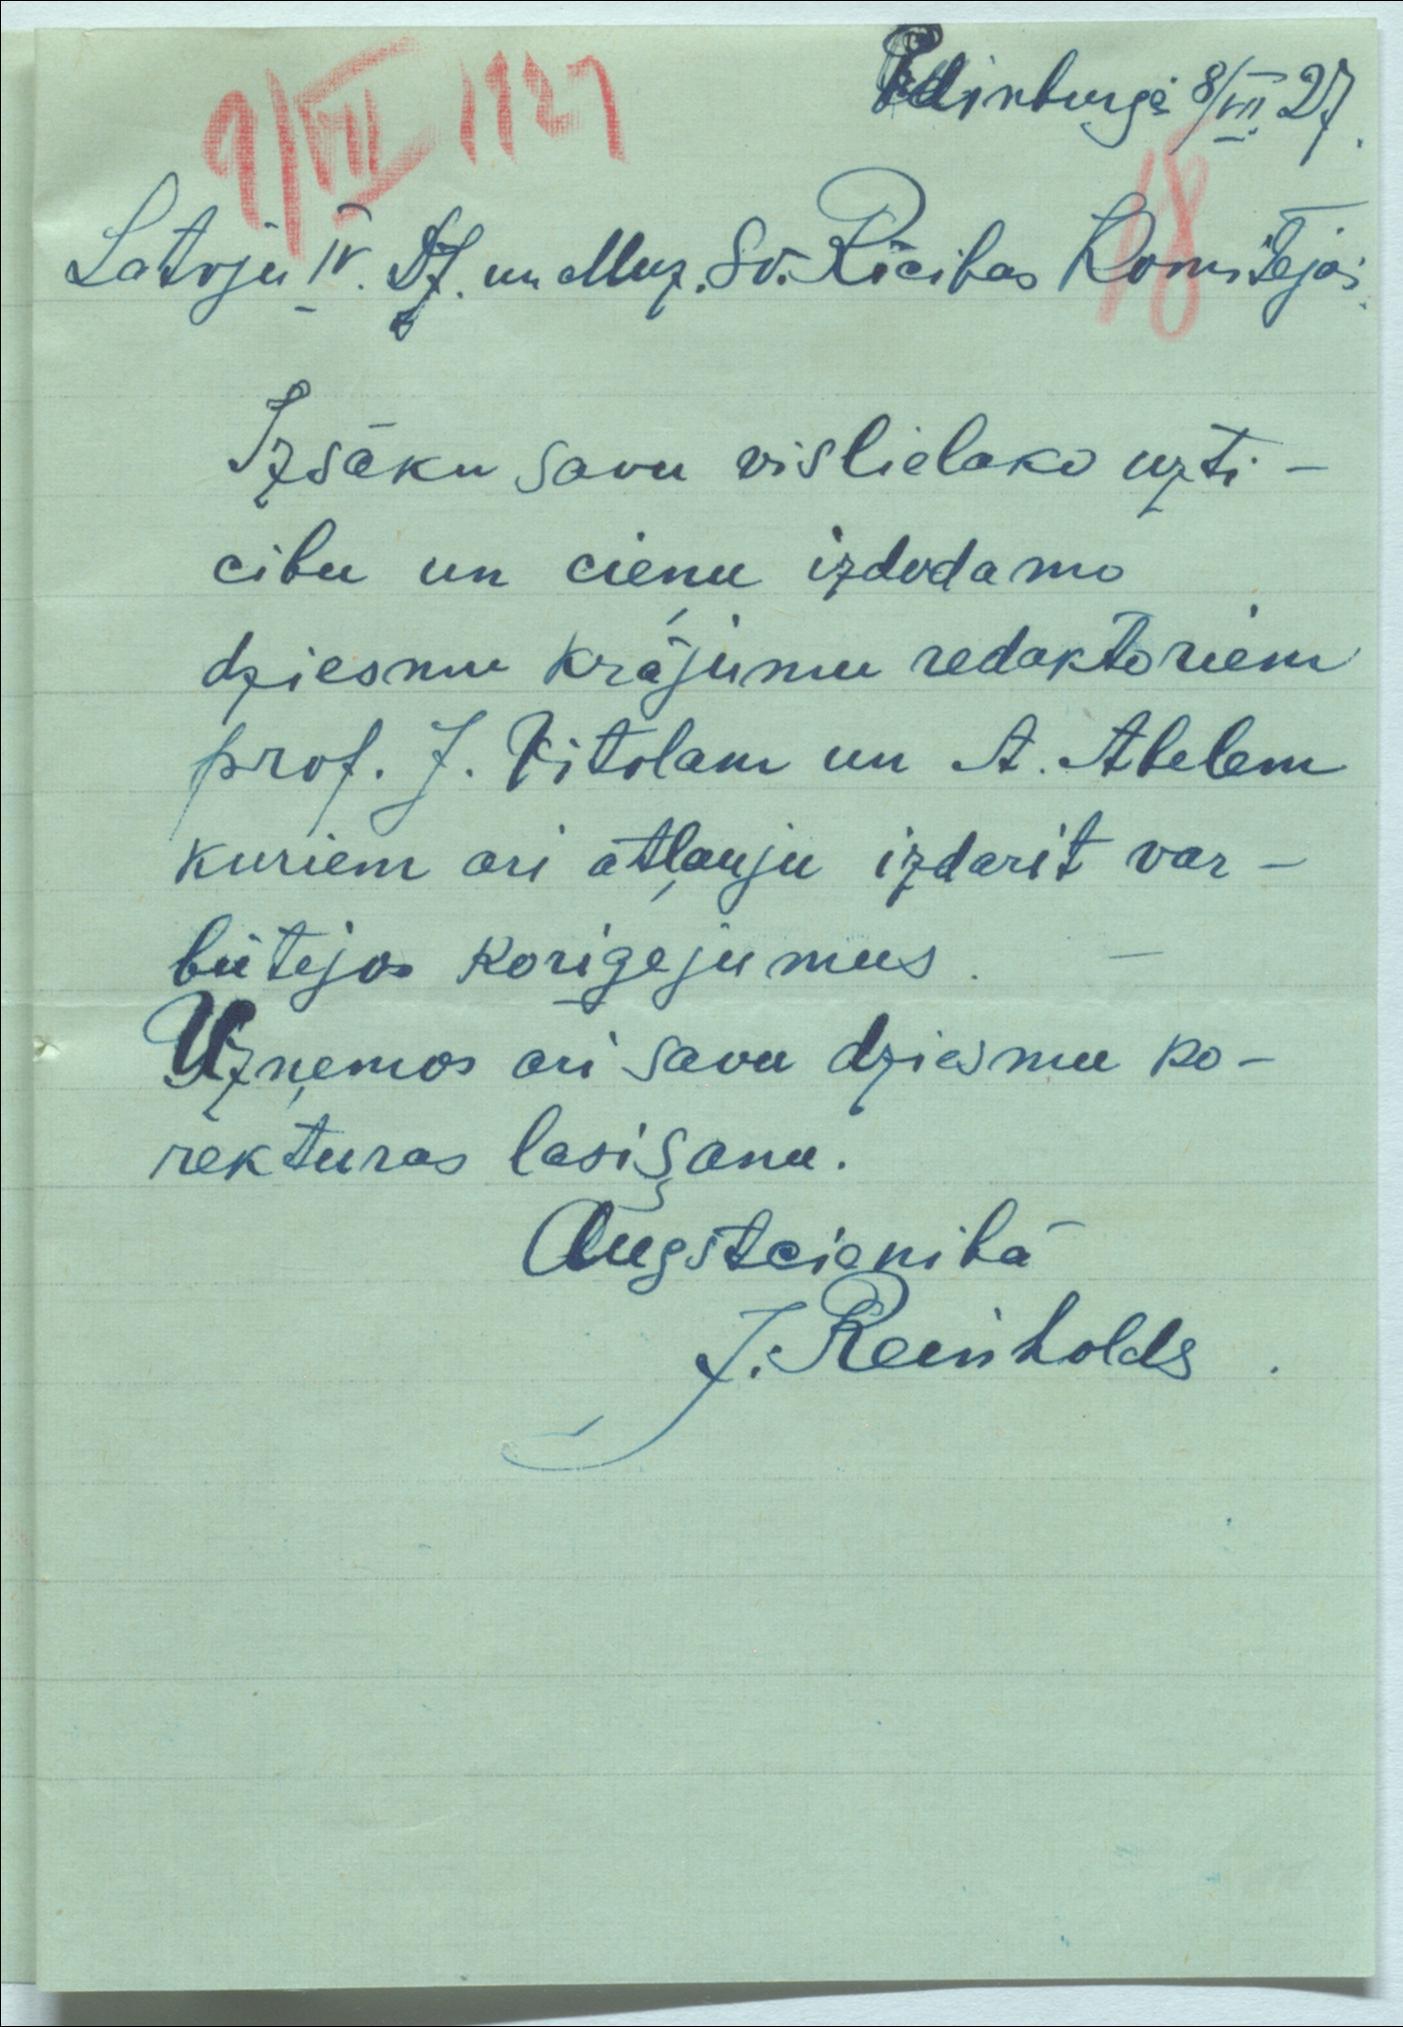 Edinburgā 8/VII 27.
9/VII 1927
18
Latvju IV. Dz. un Muz. Sv. Rīcības Komitejai.
Izsāku savu vislielako uzti-
cibu un cieņu izdodamo
dziesmu krājumu redaktoriem
prof. J. Vitolam un A. Abelem
kuriem ari atļauju izdarit var-
būtejos korigejumus.
Uzņemos ari savu dziesmu ko-
rekturas lasišanu.
Augstcienibā
J. Reinholds.